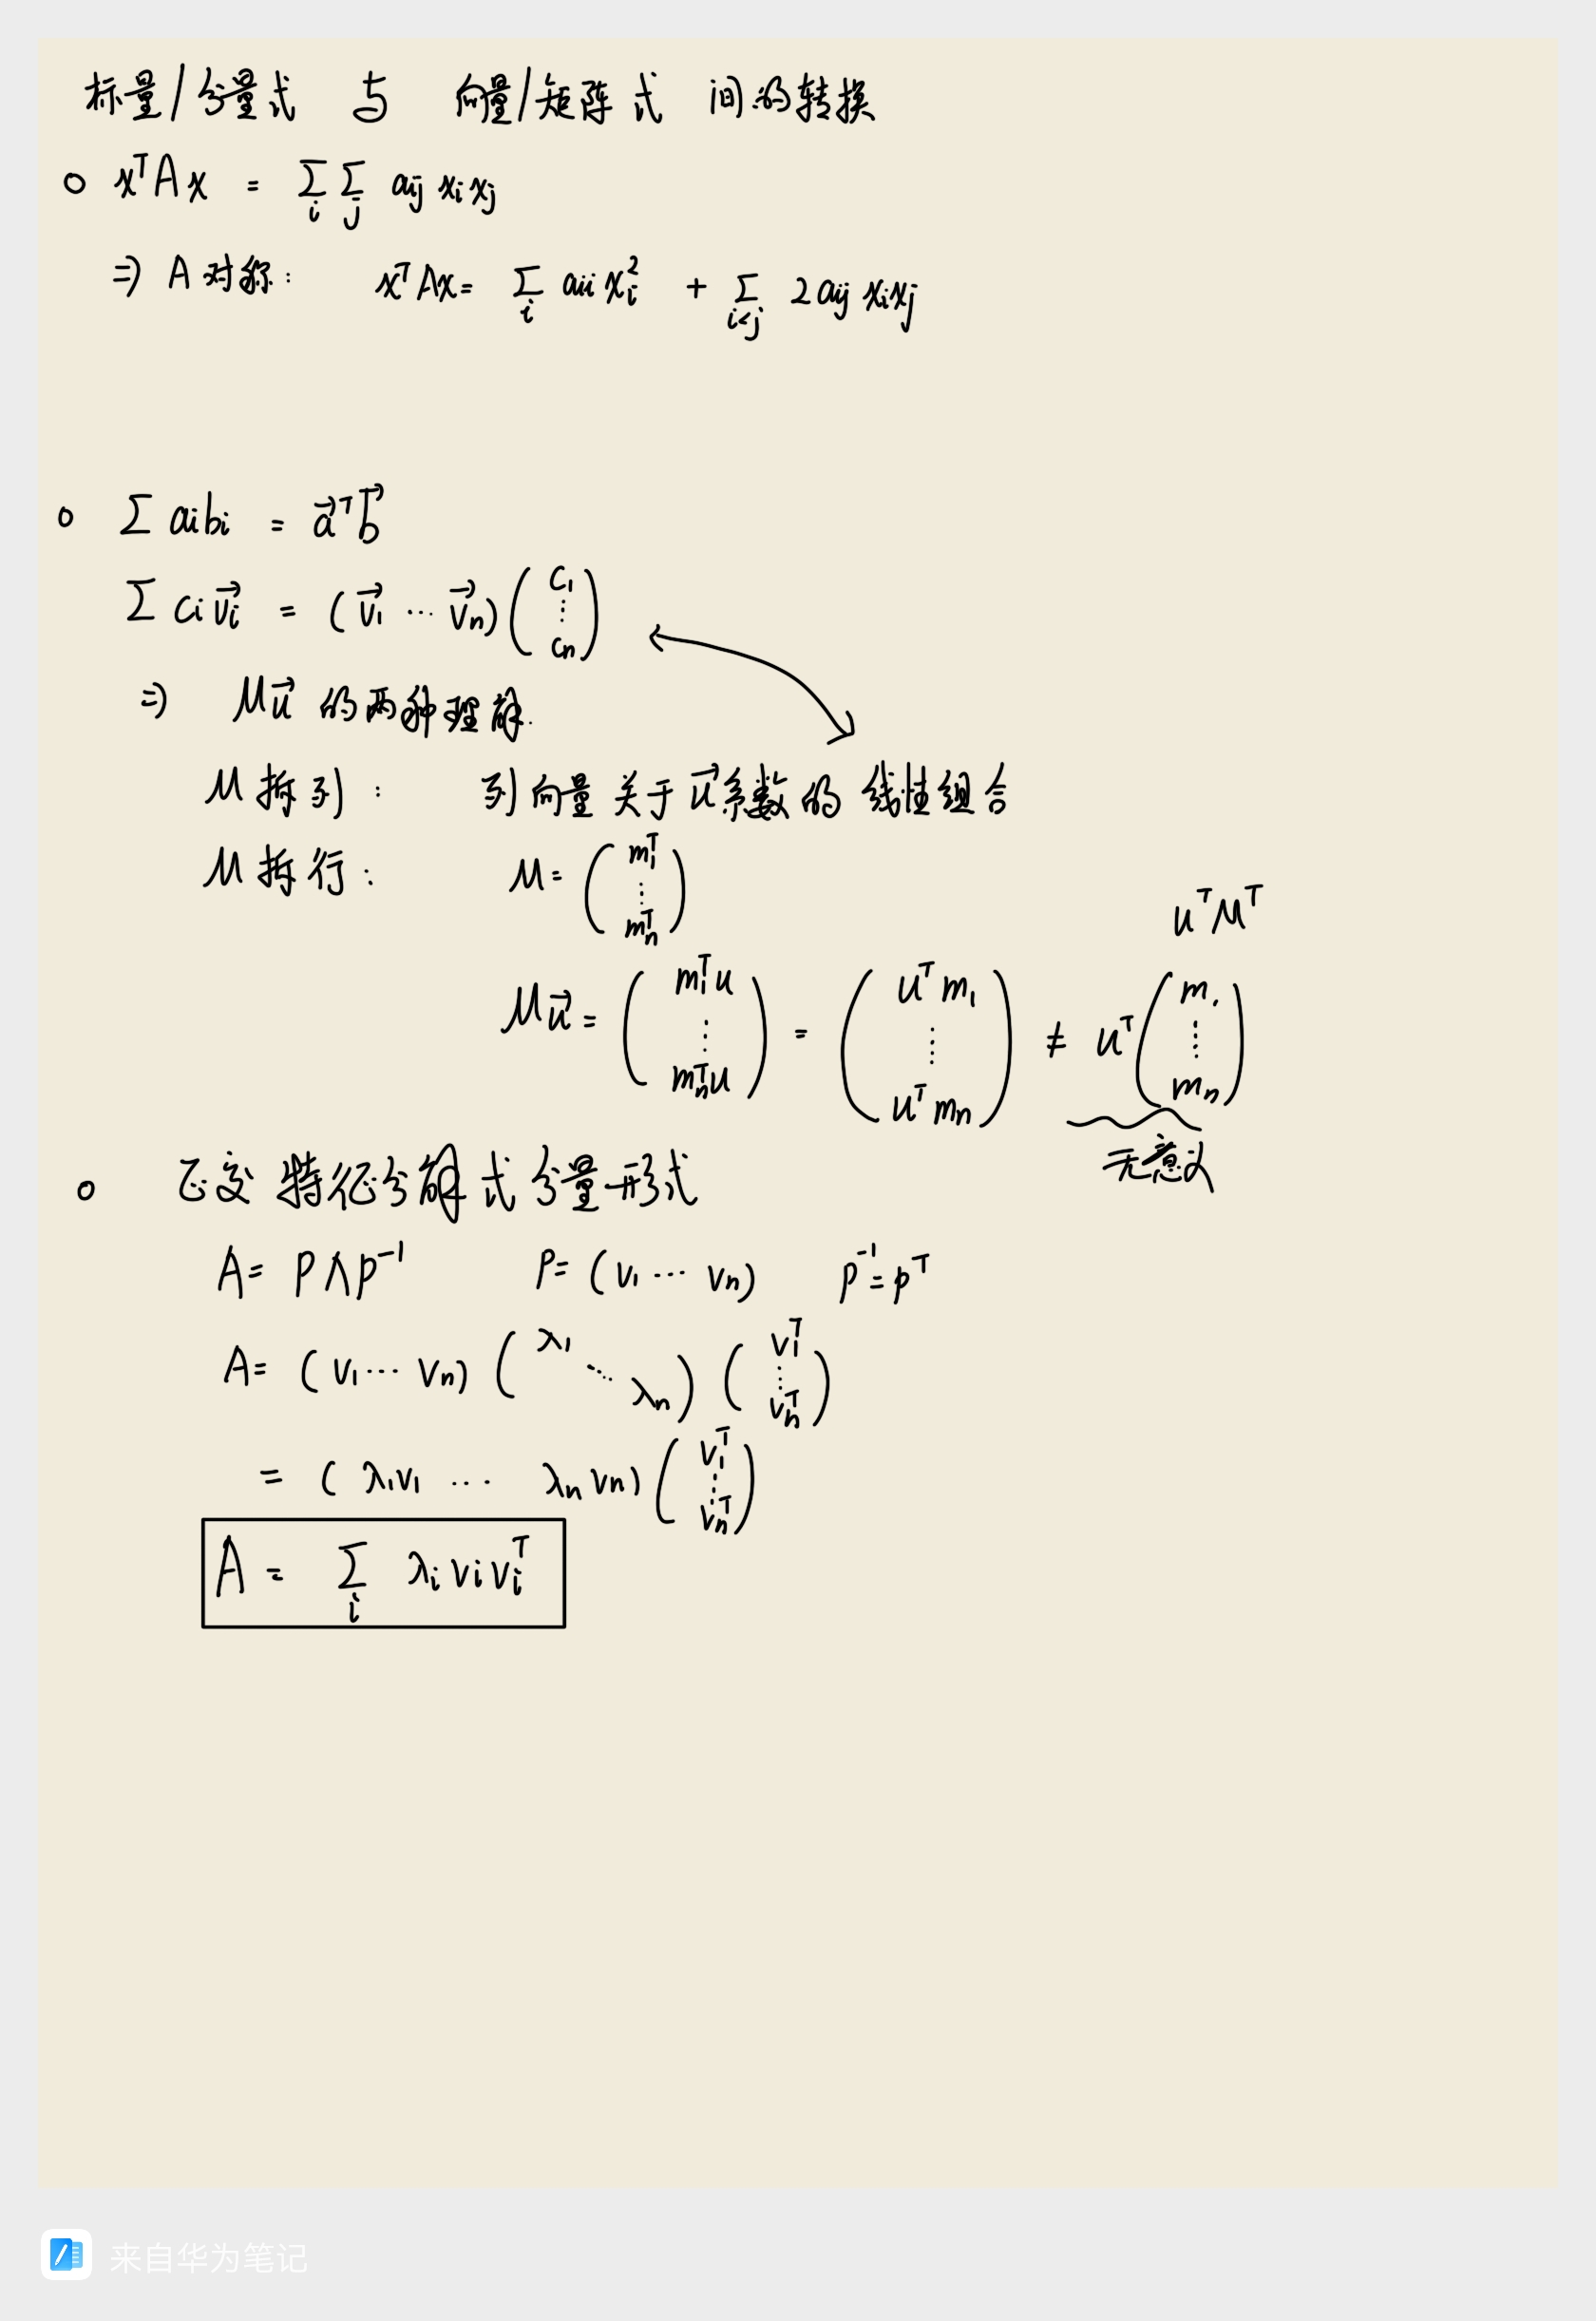 标量/分量式 与 向量/矩阵式 间的转换
○ xᵀAx = Σᵢ Σⱼ aᵢⱼ xᵢ xⱼ
⇒ A对称: xᵀAx = Σᵢ aᵢᵢ xᵢ² + Σ_{i<j} 2aᵢⱼ xᵢxⱼ
○ Σ aᵢbᵢ = a⃗ᵀb⃗
Σ cᵢv⃗ᵢ = (v⃗₁ ⋯ v⃗ₙ)(c₁ ⋮ cₙ)
⇒ Mu⃗ 的两种理解.
M拆列: 列向量关于u⃗系数的线性组合
M拆行: M = (m₁ᵀ ⋮ mₙᵀ)
uᵀMᵀ
Mu⃗ = (m₁ᵀu ⋮ mₙᵀu) = (uᵀm₁ ⋮ uᵀmₙ) ≠ uᵀ(m₁ ⋮ mₙ)
无意义
○ 正交特征分解式分量形式
A = PΛP⁻¹ P = (v₁ ⋯ vₙ) P⁻¹ = Pᵀ
A = (v₁ ⋯ vₙ)(λ₁ ⋱ λₙ)(v₁ᵀ ⋮ vₙᵀ)
= (λ₁v₁ ⋯ λₙvₙ)(v₁ᵀ ⋮ vₙᵀ)
A = Σᵢ λᵢvᵢvᵢᵀ
来自华为笔记